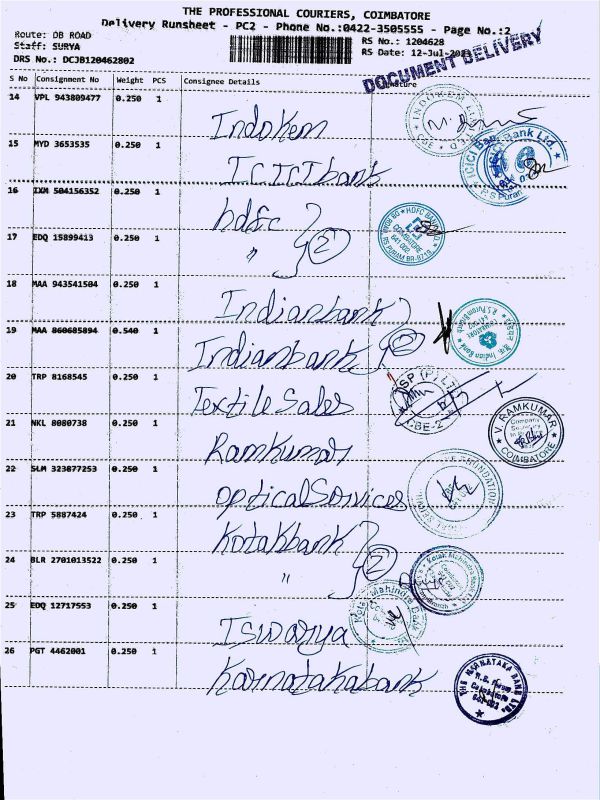 THE PROFESSIONAL COURIERS, COIMBATORE
Delivery Runsheet - PC2 - Phone No.:0422-3505555 - Page No.:2
Route: DB ROAD
Staff: SURYA
DRS No.: DCJB120462802
RS No.: 1204628
RS Date: 12-Jul-
DOCUMENT DELIVERY
S No Consignment No Weight PCS Consignee Details
14 VPL 943809477 0.250 1
Indokem
15 MYD 3653535 0.250 1
ICICI bank
16 IXM 504156352 0.250 1
hdfc
17 EDQ 15899413 0.250 1
" 2
18 MAA 943541504 0.250 1
Indianbank
19 MAA 860685894 0.540 1
Indianbank 2
20 TRP 8168545 0.250 1
Textile Sales
21 NKL 8080738 0.250 1
Ramkumar
22 SLM 323877253 0.250 1
optical Services
23 TRP 5887424 0.250 1
Kotakbank
24 BLR 2701013522 0.250 1
" 2
25 EDQ 12717553 0.250 1
Iswarya
26 PGT 4462001 0.250 1
Karnatakabank
ICICI Bank Ltd.
HDFC BANK
COIMBATORE
641 002
RS PURAM BR-0719
Indian Bank
V. RAMKUMAR
Company
Secretary
COIMBATORE
Kotak Mahindra Bank
Kotak Mahindra Bank
THE KARNATAKA BANK LTD.
R.S. Puram
Coimbatore
641 002